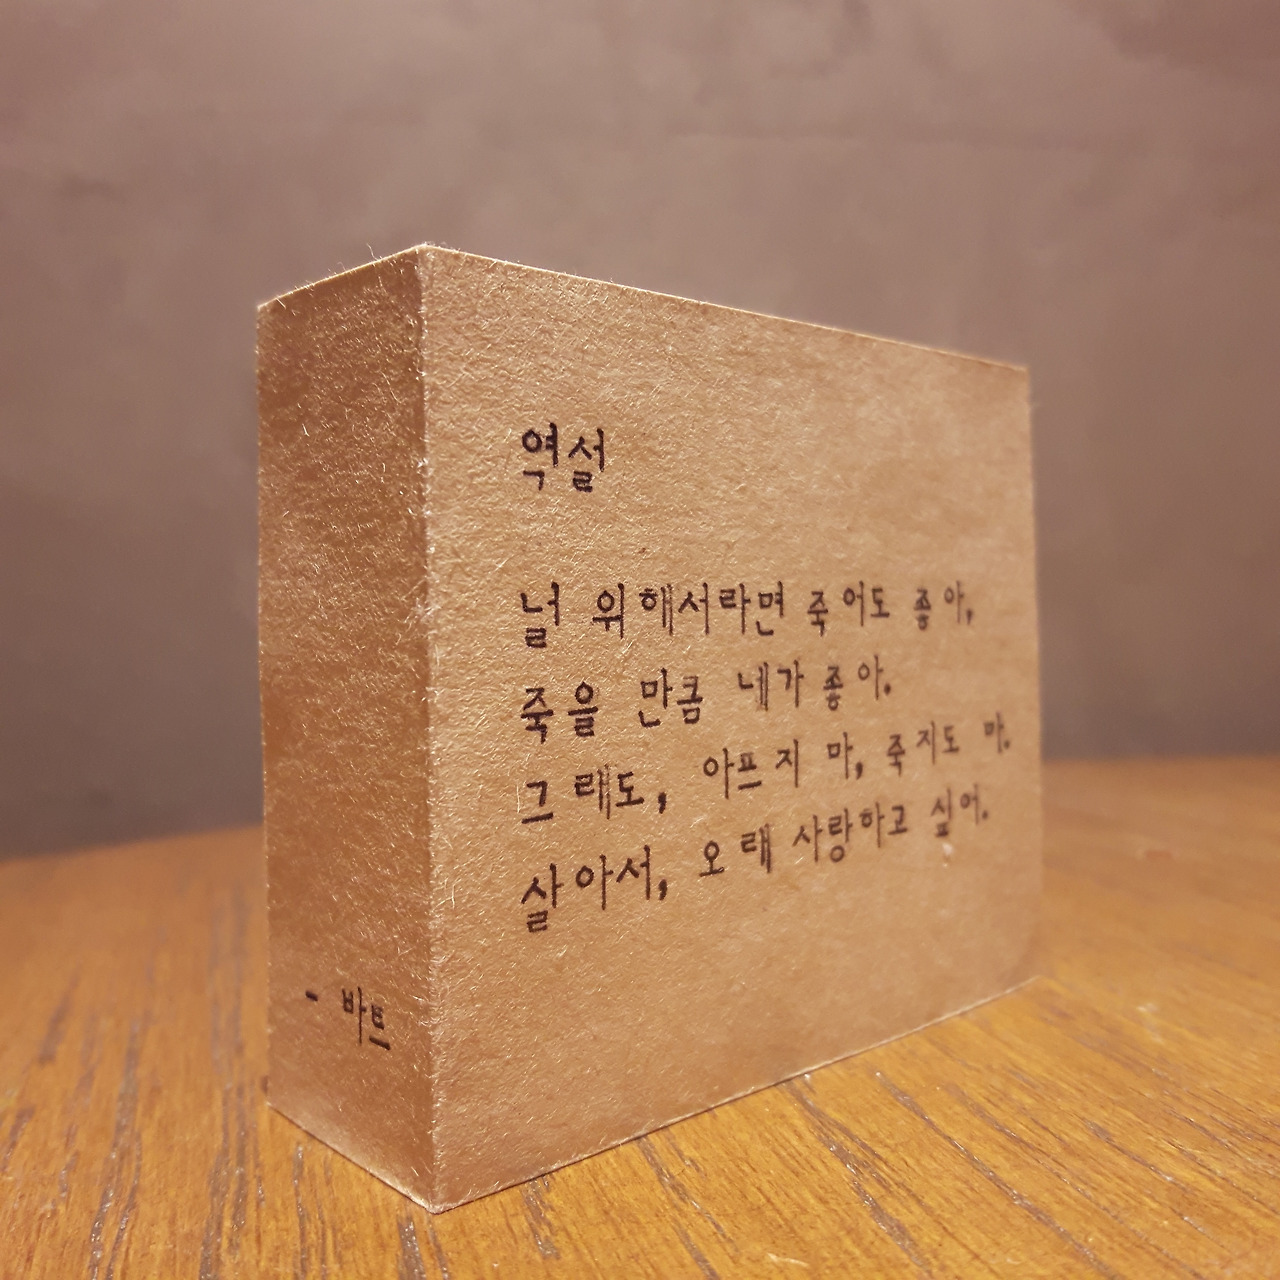 역설
널 위해서라면 죽어도 좋아,
죽을 만큼 네가 좋아.
그래도, 아프지 마, 죽지도 마.
살아서, 오래 사랑하고 싶어.
- 바트